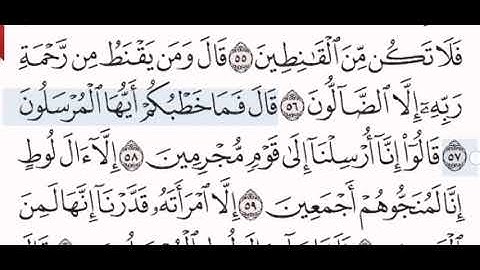 فَلَا تَكُن مِّنَ ٱلْقَـٰنِطِينَ ٥٥ قَالَ وَمَن يَقْنَطُ مِن رَّحْمَةِ
رَبِّهِۦٓ إِلَّا ٱلضَّآلُّونَ ٥٦ قَالَ فَمَا خَطْبُكُمْ أَيُّهَا ٱلْمُرْسَلُونَ
٥٧ قَالُوٓا۟ إِنَّآ أُرْسِلْنَآ إِلَىٰ قَوْمٍ مُّجْرِمِينَ ٥٨ إِلَّآ ءَالَ لُوطٍ
إِنَّا لَمُنَجُّوهُمْ أَجْمَعِينَ ٥٩ إِلَّا ٱمْرَأَتَهُۥ قَدَّرْنَآ إِنَّهَا لَمِنَ